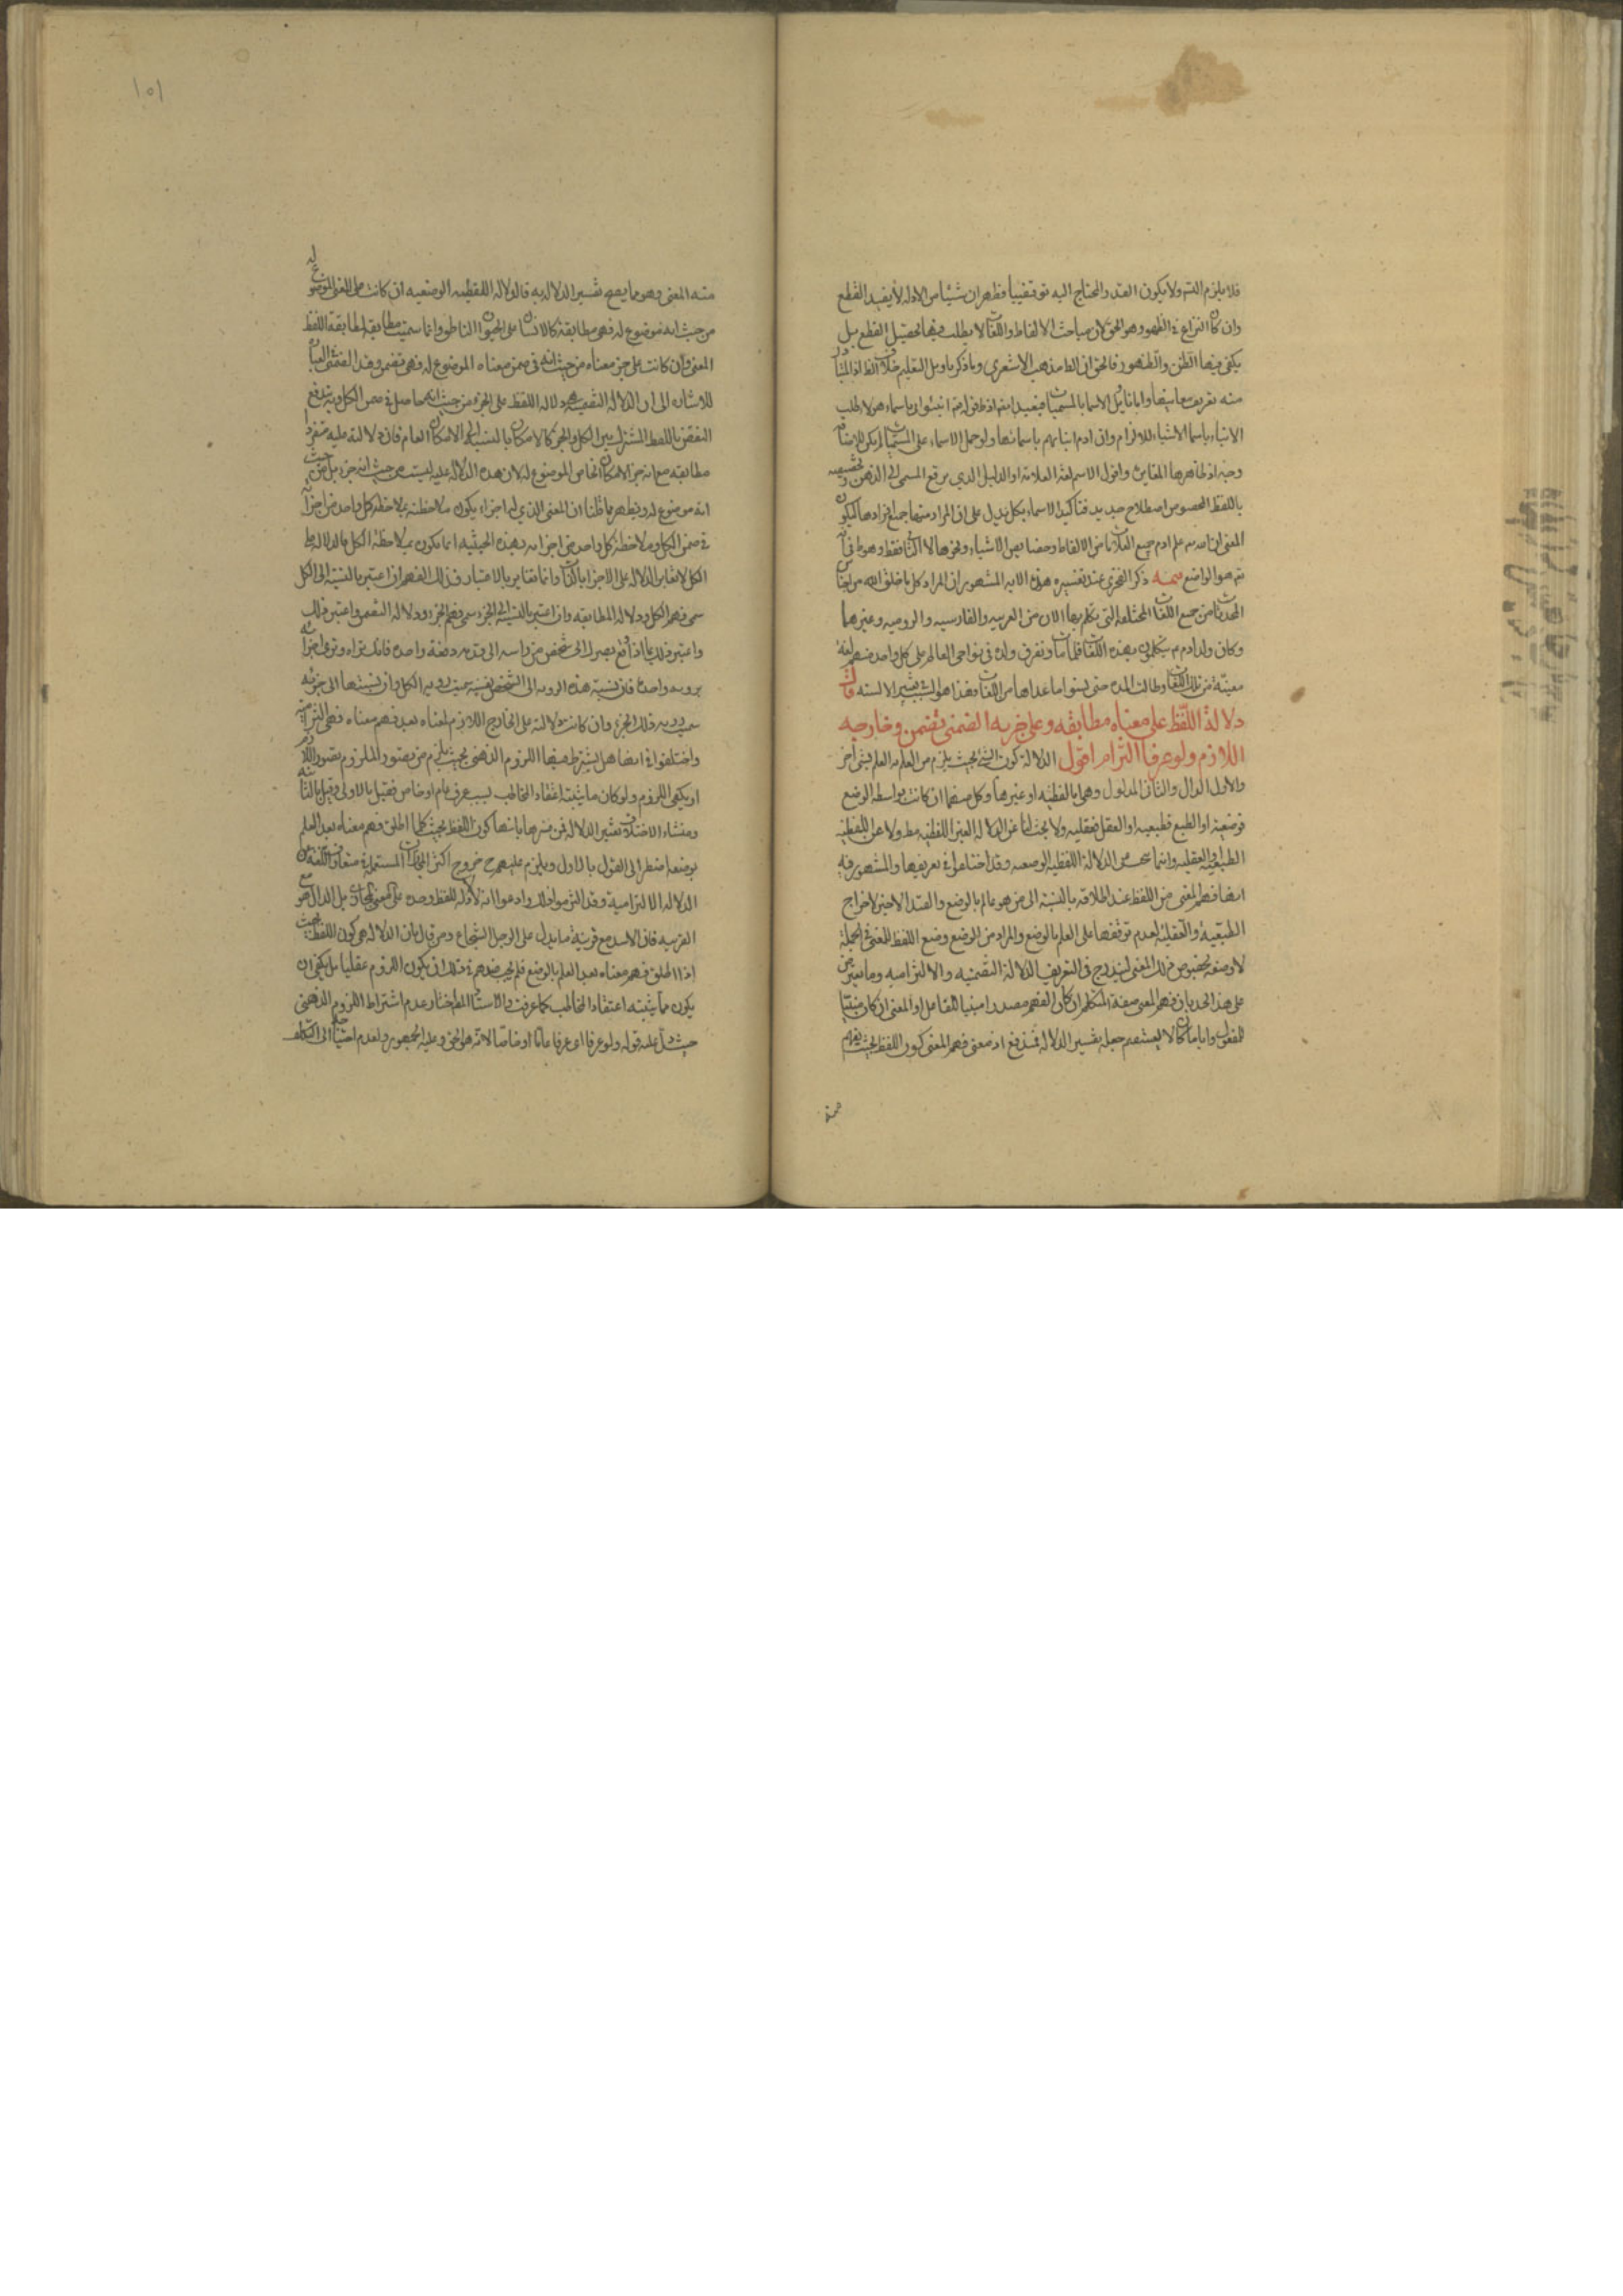 فلا يلزم التسم ولا يكون القدر المحتاج اليه توقيفيا فظهر ان شيئا من الادله لا يفيد القطع
وان كان النزاع في الظهور وهو الحق لان مباحث الالفاظ واللغات لا يطلب فيها تحصيل القطع بل
يكفي فيها الظن والظهور فالحق ان الظ مذهب الاشعري وما ذكر تاويل التعليم خلاف الظ اذ المتبادر
منه تعريف معانيها واما تاويل الاسما بالمسميات فبعيد ايضا اذ قوله تع انبئوني باسماء هولا لطلب
الانباء باسما الاشياء للالزام وان ادم انباهم باسمائها ولو حمل الاسماء على المسميات لم يكن للاضافة
وجه اذ ظاهرها المغايرة واقول الاسم لغة العلامة او الدليل الذي يرفع المسمى الى الذهن وتخصيصه
باللفظ المخصوص اصطلاح جديد فتاكيد الاسماء بكل يدل على ان المراد منها جميع افرادها فيكون
المعنى ان الله تع علم ادم جميع العلامات من الالفاظ وخصايص الاشياء وغيرها لا اللغات فقط وهو ظ في انه
تع هو الواضع تتمه ذكر الفخري عند تفسيره هذه الايه المشهور ان المراد كل ما خلق الله من اجناس
المحدثات من جميع اللغات المختلفه التي يتكلم بها الان من العربيه والفارسيه والروميه وغيرها
وكان ولد ادم يتكلمون بهذه اللغات فلما مات وتفرق ولده في نواحي العالم على كل واحد منهم لغة
معينة من تلك اللغات وطالت المده حتى نسوا ما عداها من اللغات فهذا هو السبب في تغير الالسنه قال
دلالة اللفظ على معناه مطابقه وعلى جزيه الضمني تضمن وخارجه
اللازم ولو عرفا التزام اقول الدلالة كون الشئ بحيث يلزم من العلم به العلم بشئ اخر
والاول الدال والثاني المدلول وهي اما لفظيه او غيرها وكل منهما ان كانت بواسطه الوضع
فوضعية او الطبع فطبيعيه او العقل فعقليه ولا بحث لنا عن الدلاله الغير اللفظيه مط ولا عن اللفظيه
الطبيعيه والعقليه وانما نبحث عن الدلالة اللفظيه الوضعيه وقد اختلفوا في تعريفها والمشهور فيه
انها فهم المعنى من اللفظ عند اطلاقه بالنسبة الى من هو عالم بالوضع والقيد الاخير لاخراج
الطبيعية والعقلية لعدم توقفها على العلم بالوضع والمراد من الوضع وضع اللفظ للمعنى في الجملة
لا وضعه بخصوص ذلك المعنى ليندرج في التعريف الدلالة التضمنيه والالتزاميه وما يعترض
على هذا الحد بان فهم المعنى صفة المتكلم ان كان الفهم مصدرا مبنيا للفاعل او المعنى ان كان مبنيا
للمفعول واياما كان لا يستقيم جعله تفسير الدلالة فمندفع اذ معنى فهم المعنى كون اللفظ بحيث يفهم
منه
١٥١
منه المعنى وهو ما يصح تفسير الدلاله به فالدلاله اللفظيه الوضعيه ان كانت على المعنى الموضوع له
من حيث انه موضوع له فهي مطابقة كالانسان على الحيوان الناطق وانما سميت مطابقه لمطابقة اللفظ
المعنى وان كانت على جزء معناه من حيث انه في ضمن معناه الموضوع له فهي تضمن وقيد الضمني
للاشاره الى ان الدلاله التضمنيه هي دلاله اللفظ على الجزء من حيث انه حاصل في ضمن الكل وبه يندفع
النقض باللفظ المشترك بين الكل والجزء كالامكان بالنسبه الى الامكان العام فان دلالته عليه منفردا
مطابقه مع انه جزء الامكان الخاص الموضوع له لان هذه الدلاله عليه ليست من حيث انه جزء بل من حيث
انه موضوع له ويظهر مما قلنا ان المعنى الذي له اجزاء يكون ملاحظته بملاحظة كل واحد من اجزائه
في ضمن الكل وملاحظة كل واحد من اجزائه بهذه الحيثيه انما يكون بملاحظة الكل فالدلاله على
الكل لا تغاير الدلاله على الاجزا بالذات وانما تغاير بالاعتبار فذلك الفهم ان اعتبر بالنسبة الى الكل
سمي فهم الكل ودلاله المطابقه وان اعتبر بالنسبة الى الجزء سمي فهم الجزء ودلاله التضمن واعتبر ذلك
واعتبر ذلك بما اذا وقع بصرك الى شخص من راسه الى قدمه دفعة واحده فانك تراه وترى اجزائه
برويه واحدة فان نسبة هذه الرويه الى الشخص نفسه سميت رويه الكل وان نسبتها الى جزئه
سميت رويه ذلك الجزء وان كانت دلالته على الخارج اللازم لمعناه بعد فهم معناه فهي التزاميه
واختلفوا في انها هل يشترط فيها اللزوم الذهني بحيث يلزم من تصور الملزوم تصور اللازم
او يكفي اللزوم ولو كان مما يثبته اعتقاد المخاطب بسبب عرف عام او خاص فقيل بالاولى وقيل بالثانيه
ومنشاء الاختلاف تفسير الدلاله فمن فسرها بانها كون اللفظ بحيث كلما اطلق فهم معناه بعد العلم
بوضعه اضطر الى القول بالاول ويلزم عليهم خروج اكثر المجازات المستعملة
الدلاله الالتزامية وقد التزموا ذلك وادعوا انه لا دلاله للفظ وحده على المعنى المجازي بل الدال هو مع
القرينه فان الاسد مع قرينة ما يدل على الرجل الشجاع ومن قال بان الدلاله هي كون اللفظ بحيث
اذا اطلق فهم معناه بعد العلم بالوضع فلم يجب عندهم في ذلك ان يكون اللزوم عقليا بل يكفي ان
يكون مما يثبته اعتقاد المخاطب كما عرفت والاستاد المط اختار عدم اشتراط اللزوم الذهني
حيث دل عليه قوله ولو عرفا اي عرفا عاما او خاصا لانه هو الحق وعليه الجمهور ولعدم احتياجه الى التكلف